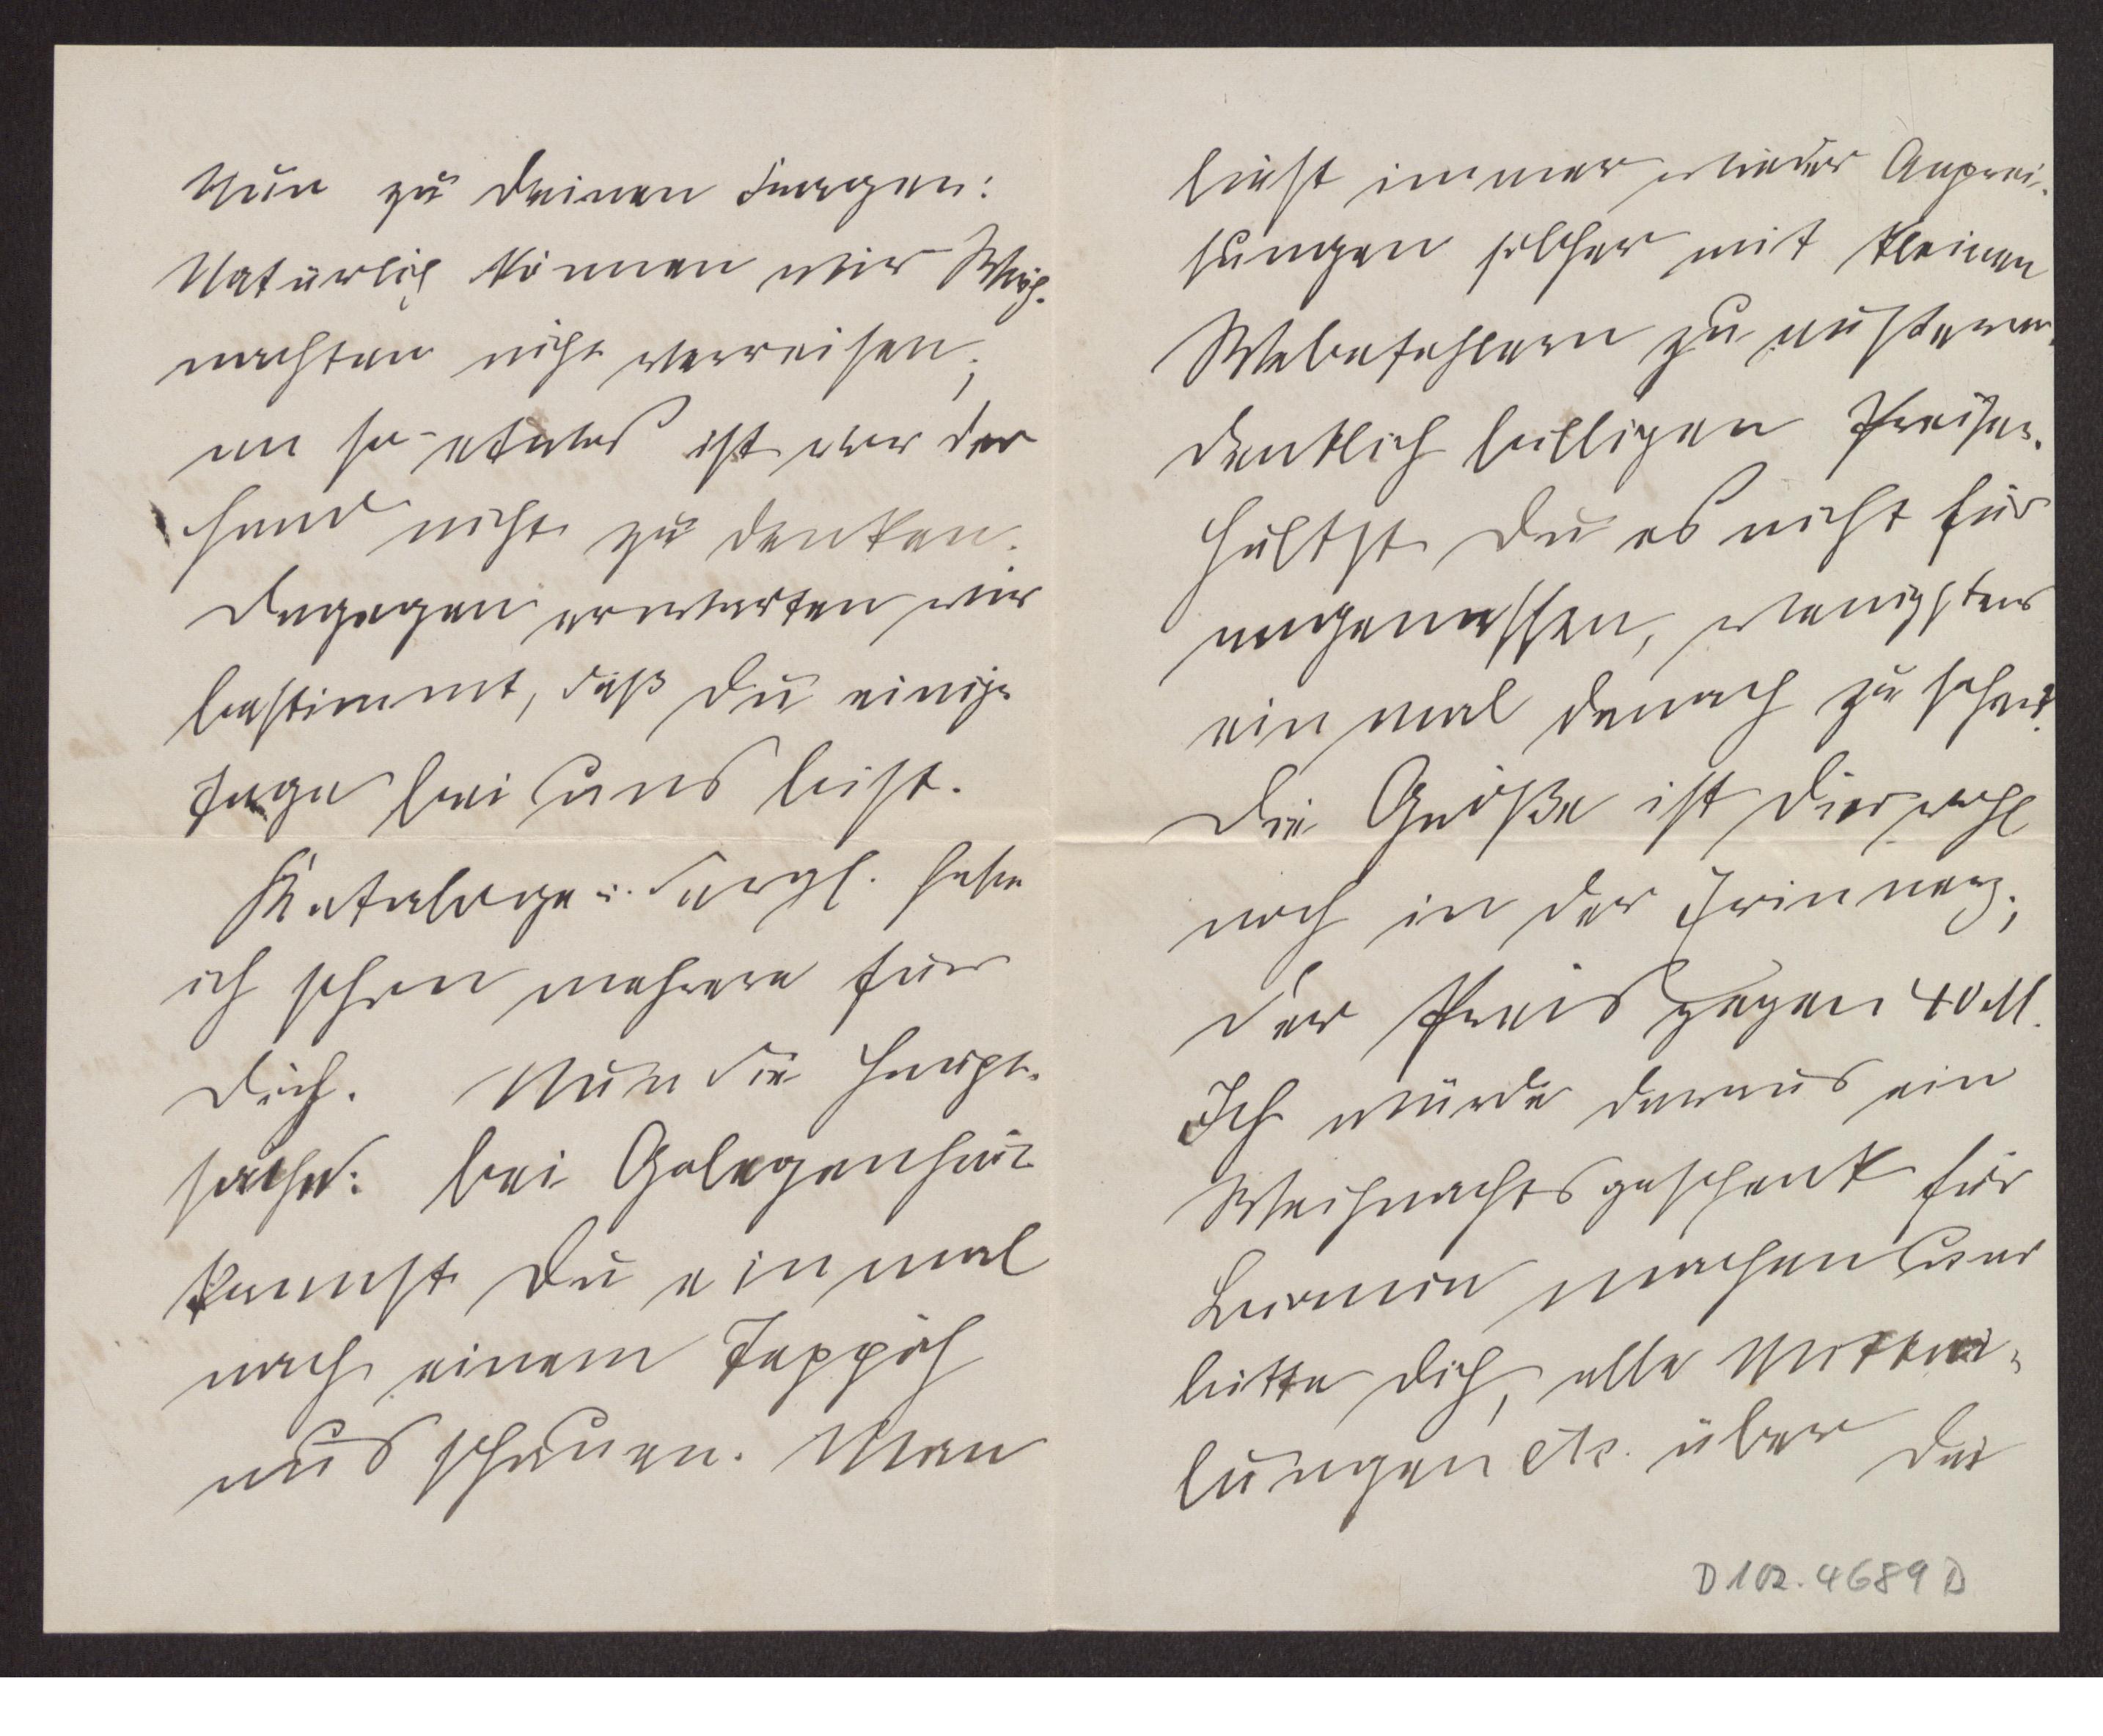 Nun zu Deinen Fragen:
Natürlich können wir Weih-
nachten nicht verreisen;
an so etwas ist vor der
Hand nicht zu denken.
Dagegen erwarten wir
bestimmt, daß Du einige
Tage bei uns bist.
Kataloge u. dergl. habe
ich schon mehrere für
Dich. Nun die Haupt-
sache: bei Gelegenheit
kannst Du einmal
nach einem Teppich
ausschauen. Man
liest immer wieder Anprei-
sungen solcher mit kleinen
Webefehlern zu außeror-
dentlich billigen Preisen.
Hältst Du es nicht für
angemessen, wenigstens
einmal danach zu sehen?
Die Größe ist Dir wohl
noch in der Erinnerg.;
der Preis gegen 40 M.
Ich würde daraus ein
Weihnachtsgeschenk für
machen und
bitte Dich, alle Mittei-
lungen etc. über die
D 102.4689 D